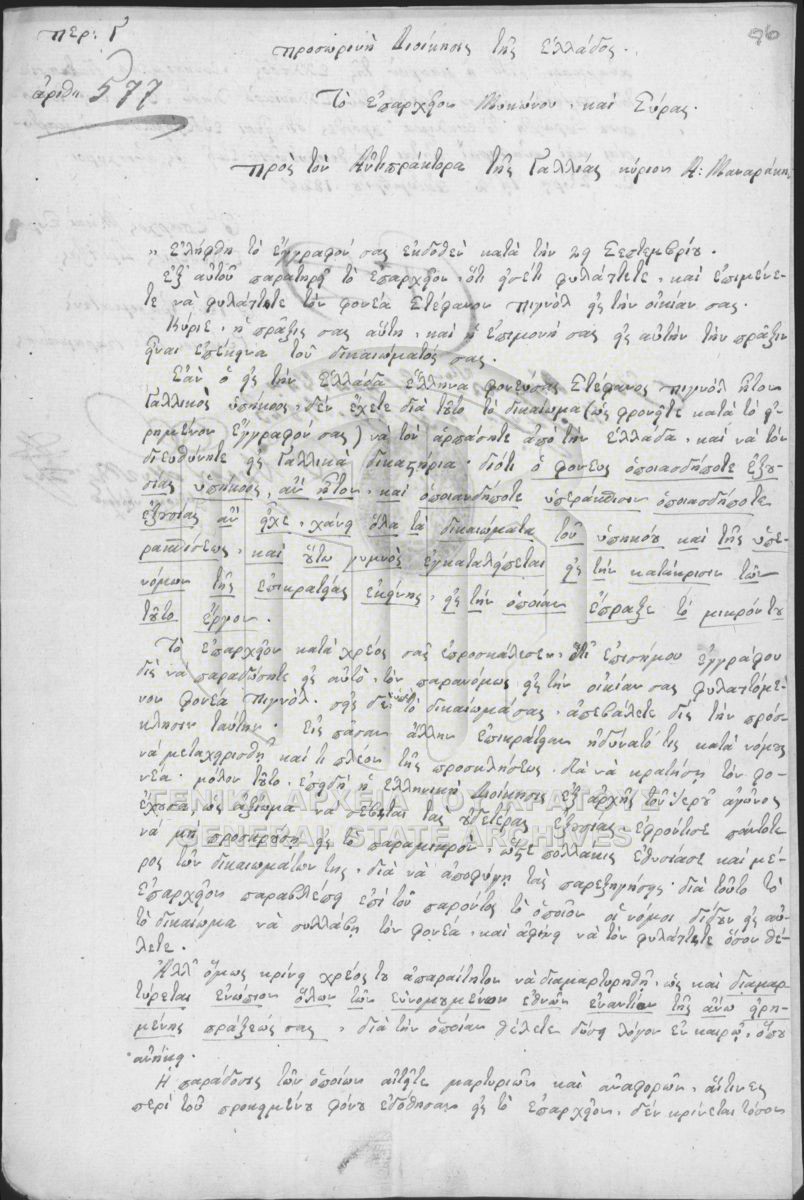 Περ: Γ
96
Προσωρινὴ Διοίκησις τῆς Ἑλλάδος.
ἀριθ. 577
Τὸ Ἐπαρχεῖον Μυκώνου, καὶ Σύρας.
Πρὸς τὸν Ἀντιπράκτορα τῆς Γαλλίας κύριον Α: Μαναράκην
„ Ἐλήφθη τὸ ἔγγραφόν σας ἐκδοθὲν κατὰ τὴν 29 Σεπτεμβρίου.
Ἐξ αὐτοῦ παρατηρεῖ τὸ Ἐπαρχεῖον, ὅτι ἐσεῖς φυλάττετε, καὶ ἐπιμένε-
τε νὰ φυλάττετε τὸν φονέα Στέφανον Πιγνὸλ εἰς τὴν οἰκίαν σας.
Κύριε, ἡ πρᾶξίς σας αὕτη, καὶ ἡ ἐπιμονή σας εἰς αὐτὴν τὴν πρᾶξιν
εἶναι ἐπέκεινα τοῦ δικαιώματός σας.
Ἐὰν ὁ εἰς τὴν Ἑλλάδα ἕλληνα φονεύσας Στέφανος Πιγνὸλ ἦτον
Γαλλικὸς ὑπήκοος, δὲν ἔχετε διὰ τοῦτο τὸ δικαίωμα (ὡς φρονεῖτε κατὰ τὸ εἰ-
ρημένον ἔγγραφόν σας) νὰ τὸν ἁρπάσητε ἀπὸ τὴν Ἑλλάδα, καὶ νὰ τὸν
διευθύνητε εἰς Γαλλικὰ δικαστήρια· διότι ὁ φονεὺς ὁποιασδήποτε ἐξου-
σίας ὑπήκοος, ἂν ἦτον, καὶ ὁποιανδήποτε ὑπεράσπισιν ὁποιασδήποτε
ἐξουσίας ἂν εἶχε, χάνει ὅλα τὰ δικαιώματα τοῦ ὑπηκόου καὶ τῆς ὑπε-
ρασπίσεως, καὶ οὕτω γυμνὸς ἐγκαταλείπεται εἰς τὴν κατάκρισιν τῶν
νόμων τῆς ἐπικρατείας ἐκείνης, εἰς τὴν ὁποίαν ἔπραξε τὸ μικρόν του
τοῦτο ἔργον.
Τὸ Ἐπαρχεῖον κατὰ χρέος σᾶς ἐπροσκάλεσεν, δι' ἐπισήμου ἐγγράφου
διὰ νὰ παραδώσητε εἰς αὐτό, τὸν παρανόμως εἰς τὴν οἰκίαν σας φυλαττόμε-
νον φονέα Πιγνόλ. σεῖς δὲ ὑπὲρ τὸ δικαίωμά σας, ἀπεβάλετε δὶς τὴν πρόσ-
κλησιν ταύτην. Εἰς πᾶσαν ἄλλην ἐπικράτειαν ἠδύνατό τις κατὰ νόμους
νὰ μεταχειρισθῇ καί τι πλέον τῆς προσκλήσεως, διὰ νὰ κρατήσῃ τὸν φο-
νέα. μολοντοῦτο, ἐπειδὴ ἡ Ἑλληνικὴ Διοίκησις ἐξ ἀρχῆς τοῦ Ἱεροῦ ἀγῶνος
ἔχουσα, ὡς ἀξίωμα νὰ σέβεται τὰς οὐδετέρας ἐξουσίας ἐφρόντισε πάντοτε
νὰ μὴ προσκρούσῃ εἰς τὸ παραμικρόν, ὥστε πολλάκις ἐθυσίασε καὶ μέ-
ρος τῶν δικαιωμάτων της, διὰ νὰ ἀποφύγῃ τὰς παρεξηγήσεις· διὰ τοῦτο τὸ
Ἐπαρχεῖον παραβλέπει ἐπὶ τοῦ παρόντος τὸ ὁποῖον οἱ νόμοι δίδουν εἰς αὐ-
τὸ δικαίωμα νὰ συλλάβῃ τὸν φονέα, καὶ ἀφίνει νὰ τὸν φυλάττετε ὅσον θέ-
λετε.
Ἀλλ' ὅμως κρίνει χρέος του ἀπαραίτητον νὰ διαμαρτυρηθῇ, ὡς καὶ διαμαρ-
τύρεται ἐνώπιον ὅλων τῶν εὐνομουμένων ἐθνῶν ἐναντίον τῆς ἄνω εἰρη-
μένης πράξεώς σας, διὰ τὴν ὁποίαν θέλετε δώσει λόγον ἐν καιρῷ, ὅπου
ἀνήκει.
Ἡ παράδοσις τῶν ὁποίων αἰτεῖτε μαρτυριῶν καὶ ἀναφορῶν, αἵτινες
περὶ τοῦ προκειμένου φόνου ἐδόθησαν εἰς τὸ Ἐπαρχεῖον, δὲν κρίνεται τόσον
ΓΕΝΙΚΑ ΑΡΧΕΙΑ ΤΟΥ ΚΡΑΤΟΥΣ
GENERAL STATE ARCHIVES